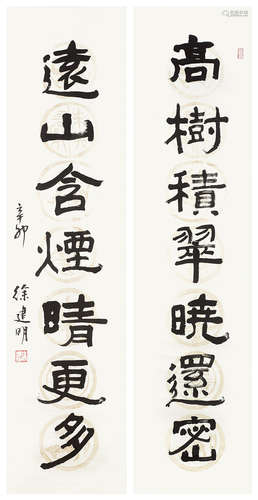 高樹積翠曉還密
遠山含煙晴更多
辛卯
徐建明